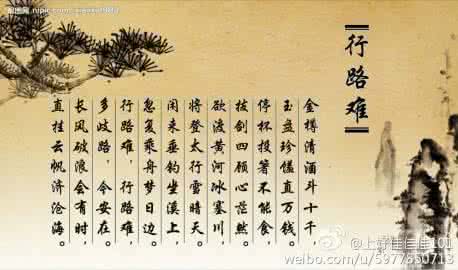 行路难
金樽清酒斗十千，
玉盘珍馐直万钱。
停杯投箸不能食，
拔剑四顾心茫然。
欲渡黄河冰塞川，
将登太行雪暗天。
闲来垂钓坐溪上，
忽复乘舟梦日边。
行路难，行路难，
多歧路，今安在。
长风破浪会有时，
直挂云帆济沧海。
@上好佳佳佳101
weibo.com/u/5977850713